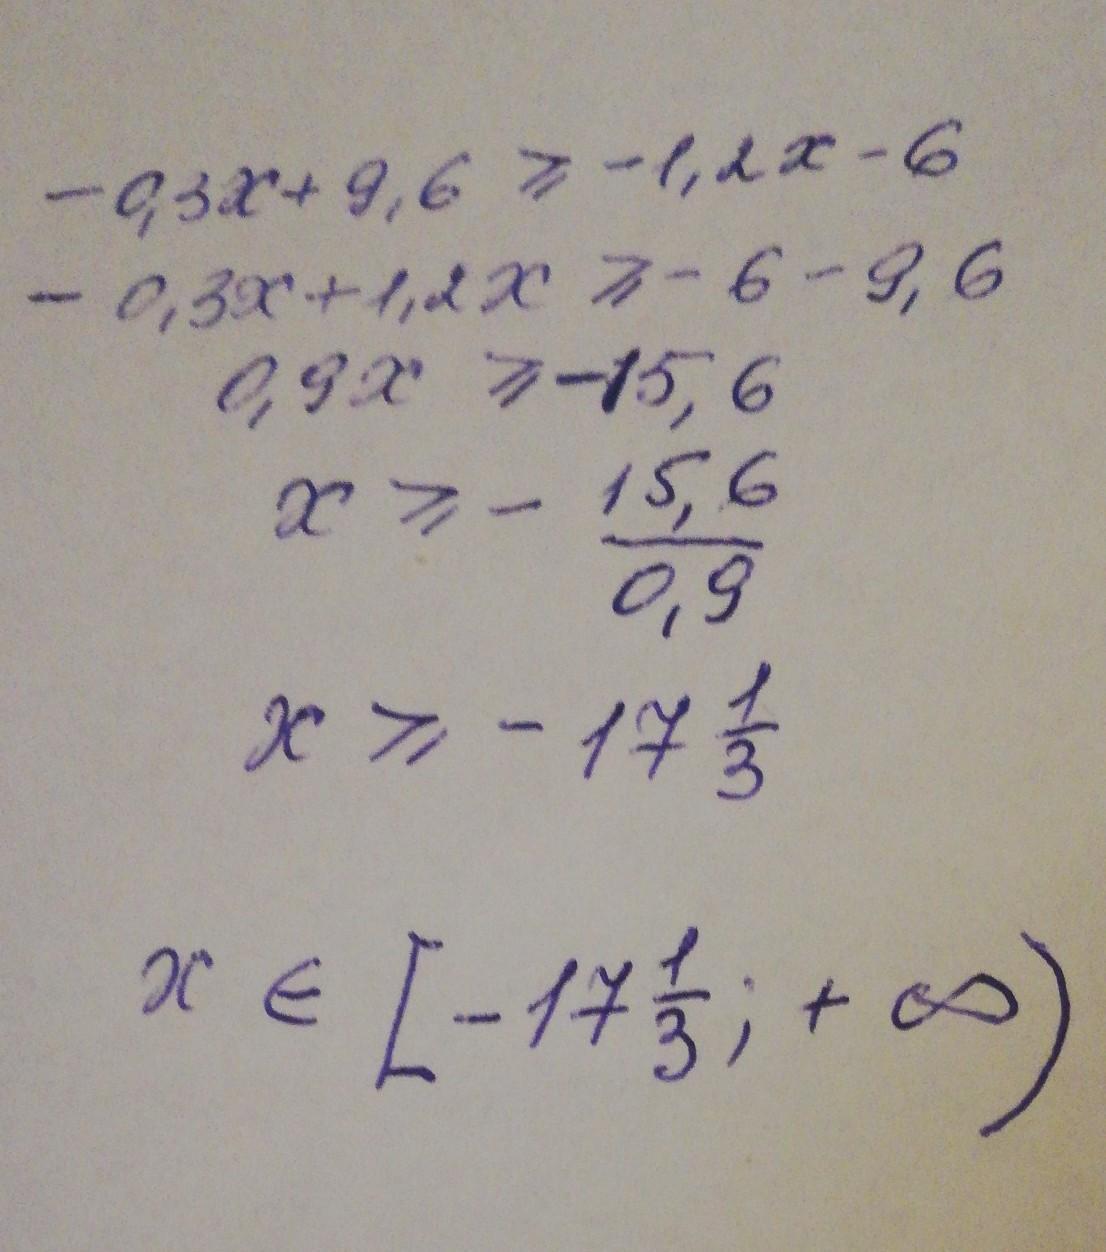 -0,3x+9,6 ⩾ -1,2x-6
-0,3x+1,2x ⩾ -6-9,6
0,9x ⩾ -15,6
x ⩾ - 15,6/0,9
x ⩾ -17 1/3
x ∈ [-17 1/3; +∞)